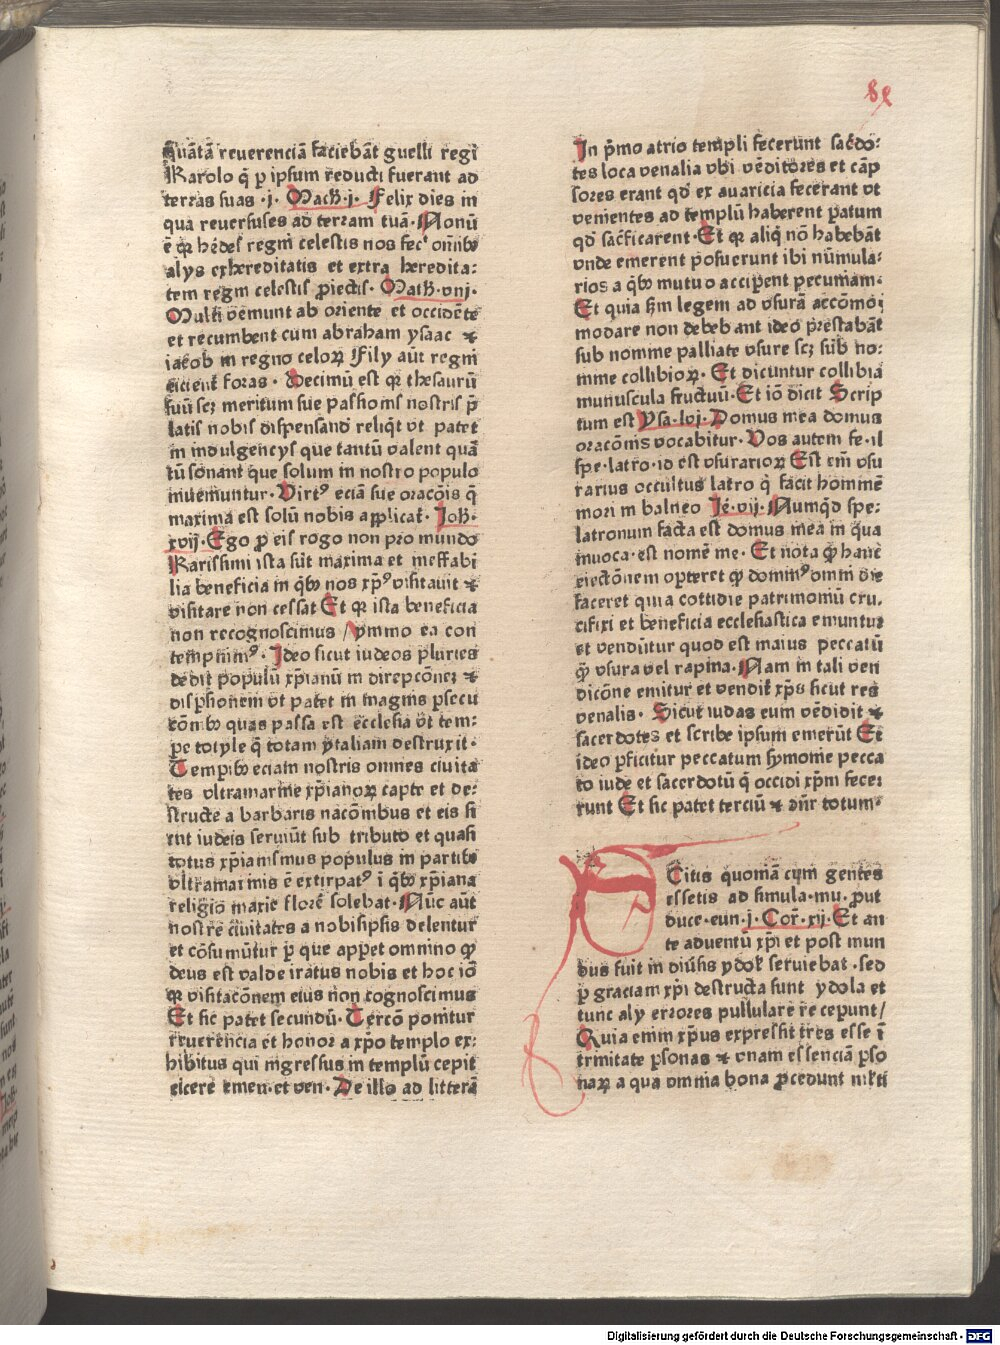 Quātā reuerenciā faciebāt guelli regi
Karolo q̄ p ipsum reducti fuerant ad
terras suas .j. Mach. j. Felix dies in
qua reuersus es ad terram tuā. Nonū
ē qꝛ hēdes regni celestis nos fecit omībꝫ
alijs exhereditatis et extra heredita:
tem regni celestis ꝓiectis. Math. viij.
Multi veniunt ab oriente et occidēte
et recumbent cum abraham ysaac ⁊
iacob in regno celoꝝ Filij aūt regni
eicient foras. Decimū est qꝛ thesaurū
suū scꝫ meritum sue passionis nostris p̄
latis nobis dispensand reliqt vt patet
in indulgencijs que tantū valent quā
tū sonant que solum in nostro populo
inueniuntur. Virtꝰ eciā sue oracōis q̄
maxima est solū nobis applicat. Joh.
xvij. Ego p eis rogo non pro mundo
Rarissimi ista sūt maxima et ineffabi
lia beneficia in qbꝫ nos xp̄ꝰ visitauit ⁊
visitare non cessat Et qꝛ ista beneficia
non recognoscimus / ymmo ea con
tempnimꝰ. Ideo sicut iudeos pluries
dedit populū xp̄ianū in direpcōneꝫ ⁊
dispsionem vt patet in magnis psecu
cōnibꝫ quas passa est ecclesia vt tem:
pe totyle q̄ totam ytaliam destruxit.
Tempibꝫ eciam nostris omnes ciuita
tes vltramarine xp̄ianoꝝ capte et de:
structe a barbaris nacōnibus et eis si
cut iudeis seruiūt sub tributo et quasi
totus xp̄ianismus populus in partibꝫ
vltramarinis ē extirpatꝰ ī qbꝫ xp̄iana
religio maxīe florē solebat. Nūc aūt
nostre ciuitates a nobisipsis delentur
et cōsumūtur p que appet omnino qꝙ
deus est valde iratus nobis et hoc iō
qꝛ visitacōnem eius non cognoscimus
Et sic patet secundū. Tercō ponitur
reuerencia et honor a xp̄o templo ex:
hibitus qui ingressus in templū cepit
eicere emen. et ven. De illo ad litterā
In p̄mo atrio templi fecerunt sac̄do:
tes loca venalia vbi vēditores et cāp
sores erant qd ex auaricia fecerant vt
venientes ad templū haberent patum
qd sac̄ficarent. Et qꝛ aliq nō habebāt
vnde emerent posuerunt ibi nūmula:
rios a qbꝫ mutuo acciperent pecuniam.
Et quia scdm legem ad vsurā accōmo
modare non debebant ideo prestabāt
sub nomine palliate vsure scꝫ sub no:
mine collibioꝝ. Et dicuntur collibia
munuscula fructuū. Et iō dicit Scrip
tum est Ysa. lvi. Domus mea domus
oracōnis vocabitur. Vos autem fe. il
spe. latro. id est vsurarioꝝ Est em̄ vsu
rarius occultus latro q̄ facit hominē
mori in balneo Je. vij. Numqd spe:
latronum facta est domus mea in qua
inuoca. est nomē me. Et nota qꝙ hanc
eiectōnem oporteret qꝙ dominꝰ omni die
faceret quia cottidie patrimoniū cru.
cifixi et beneficia ecclesiastica emuntur
et vendūtur quod est maius peccatū
qꝙ vsura vel rapina. Nam in tali ven
dicōne emitur et vendit xp̄s sicut res
venalis. Sicut iudas eum vēdidit ⁊
sacerdotes et scribe ipsum emerūt Et
ideo pficitur peccatum symonie pecca
to iude et sacerdotū q̄ occidi xp̄m fece:
runt Et sic patet terciū ⁊ dn̄r totum.
Citis quoniā cum gentes
essetis ad simula. mu. put
duce. eun. j. Cor. xij. Et an
te aduentū xp̄i et post mun
dus fuit in diūsis ydol seruiebat. sed
p graciam xp̄i destructa sunt ydola et
tunc alij errores pullulare ceperunt /
Quia enim xp̄us expressit tres esse ī
trinitate psonas ⁊ vnam essenciā pso
naꝝ a qua omnia bona procedunt nisti
Digitalisierung gefördert durch die Deutsche Forschungsgemeinschaft - DFG